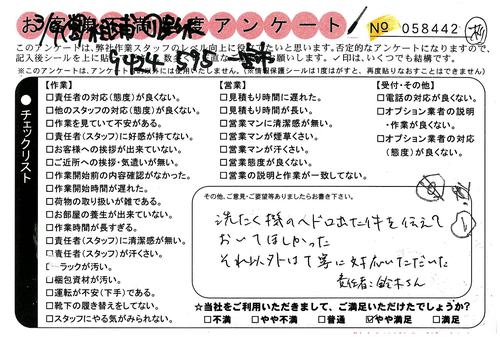 お客様満足度アンケート
No 058442
このアンケートは、弊社作業スタッフのレベル向上に
記入後シールを上に貼
※このアンケートは、アンケート
【作業】
□責任者の対応(態度)が良くない。
□他のスタッフの対応(態度)が良くない。
□作業を見ていて不安がある。
□責任者(スタッフ)に好感が持てない。
□お客様への挨拶が出来ていない。
□ご近所への挨拶・気遣いが無い。
□作業開始前の内容確認がなかった。
□作業開始時間が遅れた。
□荷物の取り扱いが雑である。
□お部屋の養生が出来ていない。
□作業時間が長すぎる。
□責任者(スタッフ)に清潔感が無い。
□責任者(スタッフ)が汗くさい。
ラックが汚い。
□梱包資材が汚い。
□運転が不安(下手)である。
□靴下の履き替えをしてない。
□スタッフにやる気がみられない。
【営業】
□見積もり時間に遅れた。
□見積もり時間が長い。
□営業マンに清潔感が無い。
□営業マンが煙草くさい。
□営業マンが汗くさい。
□営業態度が良くない。
□営業の説明と作業が一致してない。
【受付・その他】
□電話の対応が良くない。
□オプション業者の説明
・作業が良くない。
□オプション業者の対応
(態度)が良くない。
チェックリスト
その他、ご意見・ご要望等ありましたらお書き下さい。
洗たく機のヘドロ出た件を伝えて
おいてほしかった
それ以外は丁寧に対応いただいた
責任者:鈴木さん
①
☆当社をご利用いただきまして、ご満足いただけたでしょうか?
□不満 □やや不満 □普通 ☑やや満足 □満足